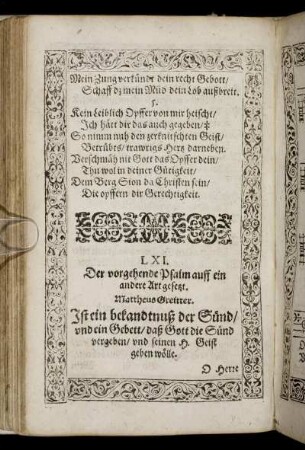 Mein Zung verkündt dein recht Gebott/
Schaff dz mein Mũd dein Lob außbreit.
5.
Kein Leiblich Opffer von mir heischt/
Ich hätt dir das auch gegeben/
So nimm nuh den zerknitschten Geist/
Betrübts/ trawrigs Hertz darneben.
Verschmäh nit Gott das Opffer dein/
Thu wol in deiner Gütigkeit/
Dem Berg Sion da Christen sein/
Die opffern dir Gerechtigkeit.
LXI.
Der vorgehende Psalm auff ein
andere Art gesetzt.
Mattheus Greitter.
Ist ein bekandtnuß der Sünd/
vnd ein Gebett/ daß Gott die Sünd
vergeben/ vnd seinen H. Geist
geben wölle.
O Herre